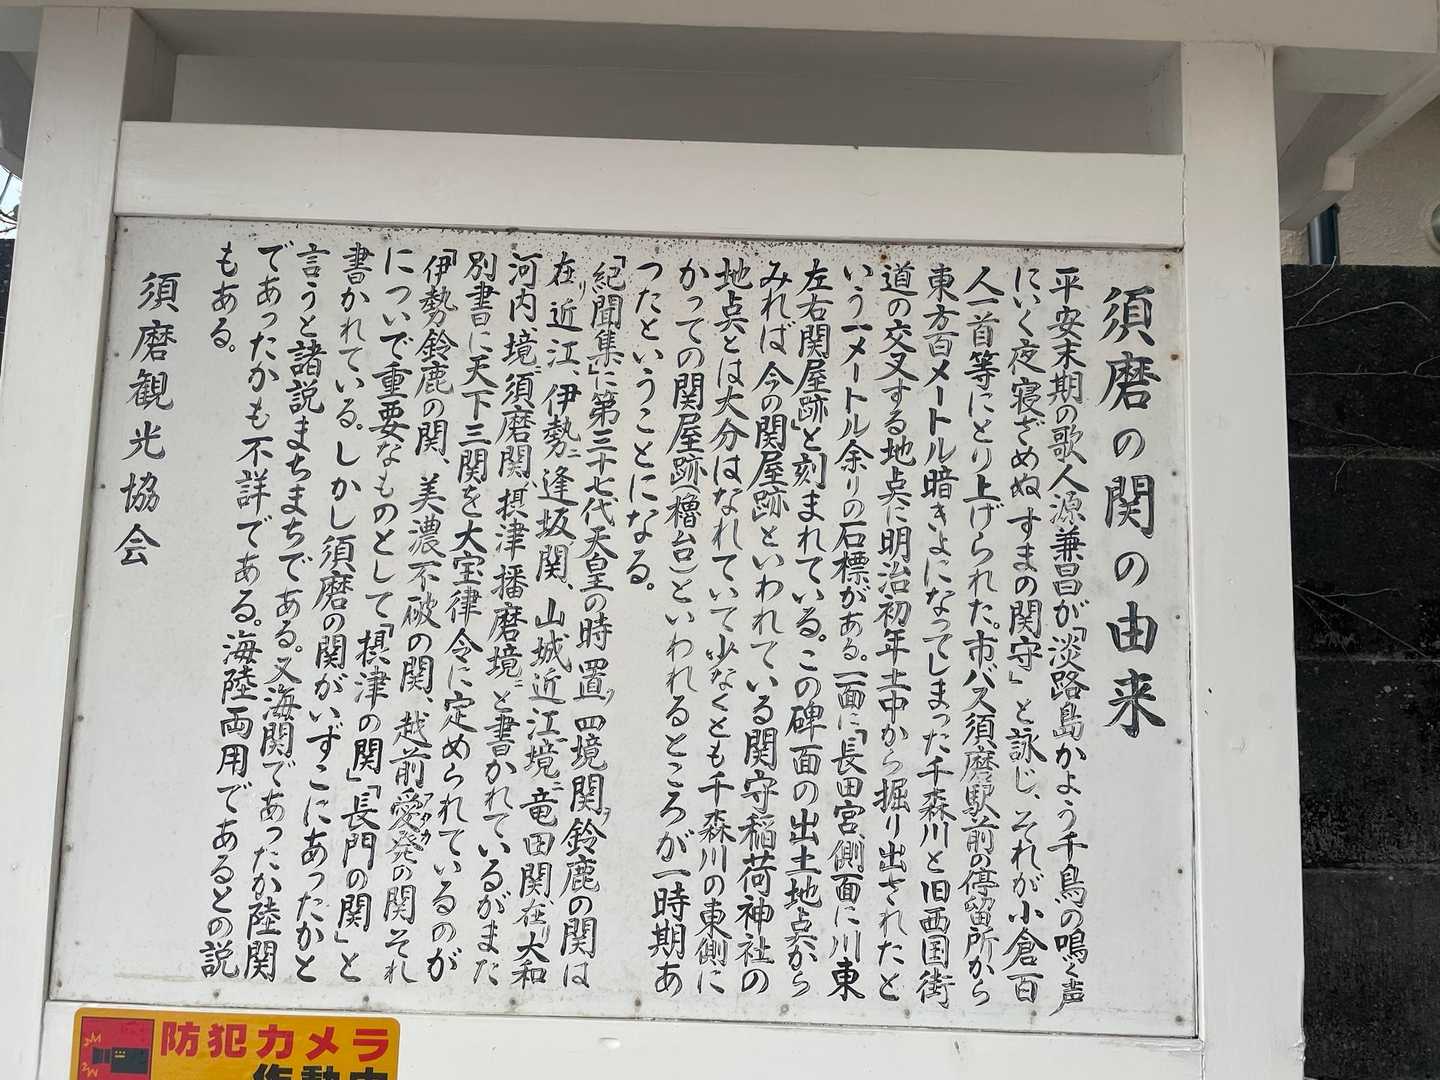 須磨の関の由来
平安末期の歌人源兼昌が「淡路島かよう千鳥の鳴く声
にいく夜寝ざめぬすまの関守」と詠じ、それが小倉百
人一首等にとり上げられた。市バス須磨駅前の停留所から
東方百メートル暗きよになってしまった千森川と旧西国街
道の交叉する地点に明治初年土中から掘り出されたと
いう一メートル余りの石標がある。一面に「長田宮」側面に川東
左右関屋跡」と刻まれている。この碑面の出土地点から
みれば今の関屋跡といわれている関守稲荷神社の
地点とは大分はなれていて少なくとも千森川の東側に
かっての関屋跡(櫓台)といわれるところが一時期あ
つたということになる。
「紀聞集」に第三十七代天皇の時置ク四境関ヲ鈴鹿の関は
在リ近江、伊勢ニ逢坂ノ関、山城近江ノ境ニ竜田関、在リ大和
河内ノ境ニ須磨関ハ摂津播磨境ニと書かれているがまた
別書に天下三関を大宝律令に定められているのが
「伊勢鈴鹿の関、美濃不破の関、越前愛発アタカの関それ
についで重要なものとして「摂津の関」「長門の関」と
書かれている。しかし須磨の関がいずこにあったかと
言うと諸説まちまちである。又海関であったか陸関
であったかも不詳である。海陸両用であるとの説
もある。
須磨観光協会
防犯カメラ
作動中